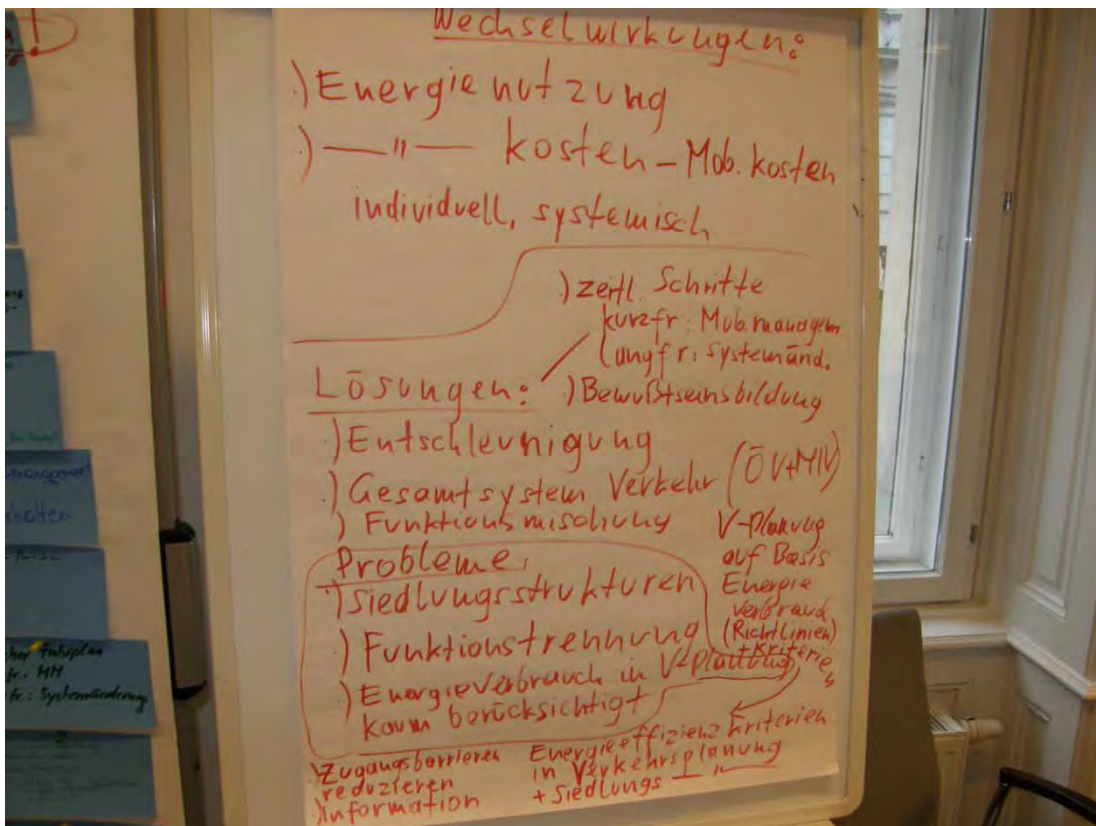 Wechselwirkungen:
.) Energienutzung
.) —"— kosten – Mob. kosten
individuell, systemisch
.) zeitl. Schritte
kurzfr: Mob.managem
langfr: systemänd.
Lösungen:
.) Bewußtseinsbildung
.) Entschleunigung
.) Gesamtsystem Verkehr (ÖV+MIV)
.) Funktionsmischung
V-Planung
auf Basis
Energie
verbrauch
(Richtlinien)
+ Kriterien
Probleme:
.) Siedlungsstrukturen
.) Funktionstrennung
.) Energieverbrauch in V-Planung
kaum berücksichtigt
.) Zugangsbarrieren
reduzieren
.) Information
Energieeffizienz Kriterien
in Verkehrsplanung
+ Siedlungs —"—
Fahrplan
fr.: MM
fr.: Systemänderung